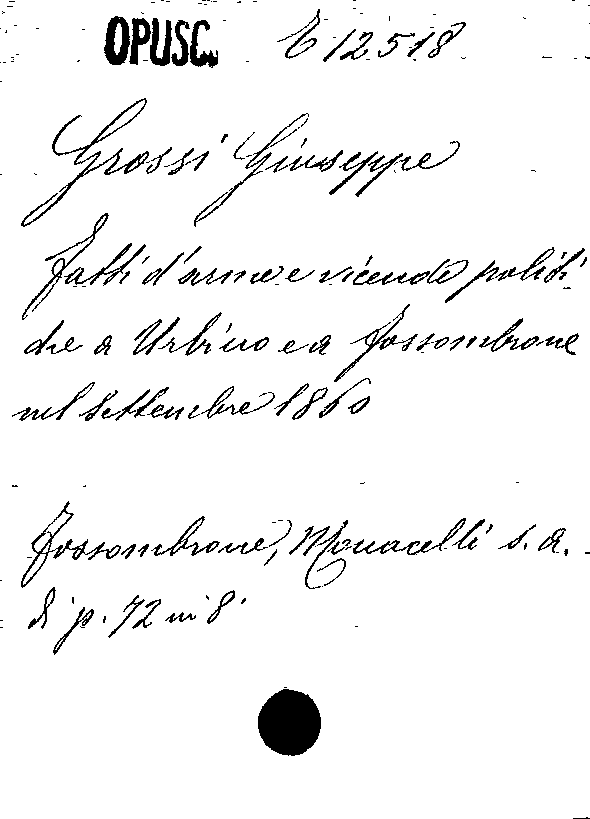 OPUSC. E 12518
Grossi Giuseppe
Fatti d'arme e vicende politi
che a Urbino e a Fossombrone
nel settembre 1860
Fossombrone, Monacelli s. a.
di p. 72 in 8°